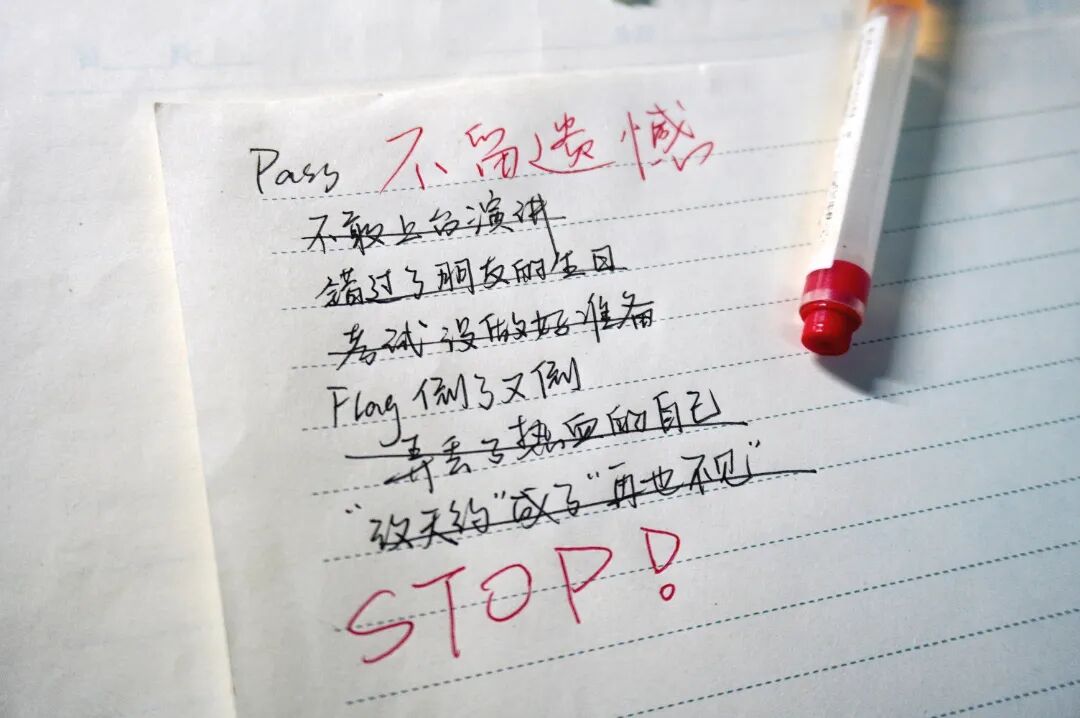 Pass 不留遗憾
不敢上台演讲
错过了朋友的生日
考试没做好准备
Flag倒了又倒
弄丢了热血的自己
“改天约”成了“再也不见”
STOP!